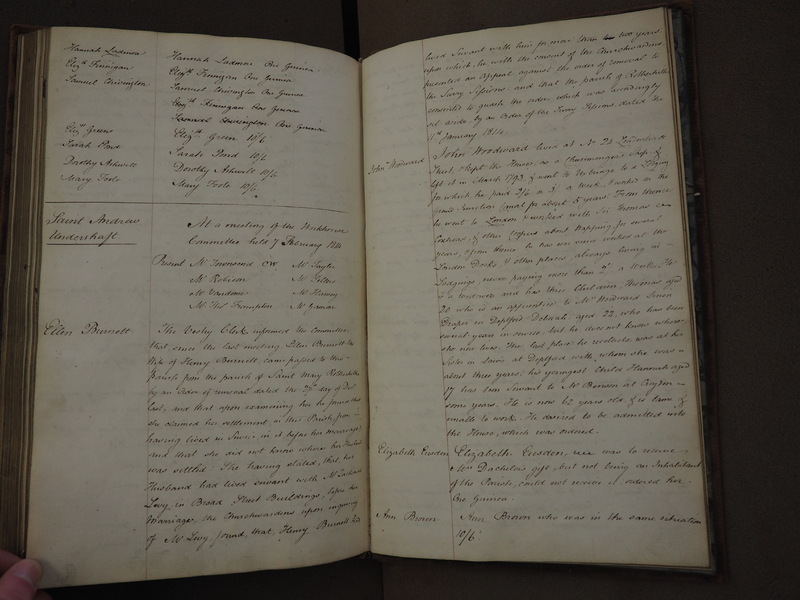 Hannah Ladmor Hannah Ladmor One Guinea
Eliz.th Finnigan Eliz.th Finnigan One Guinea
Samuel Chivington Samuel Chivington One Guinea
Eliz.th Finnigan One Guinea
Samuel Chivington One Guinea
Eliz.th Greene Eliz.th Green 10/6
Sarah Pond Sarah Pond 10/6
Dorothy Ashwell Dorothy Ashwell 10/6
Mary Foote Mary Foote 10/6
Saint Andrew
Undershaft
At a meeting of the Workhouse
Committee held 7 February 1814
Present Mr Townsend CW Mr Taylor
Mr Robison
Mr Vandome
Mr Frampton
Ellen Burnett The Vestry Clerk informed the Committee
that since the last meeting Ellen Burnett the
Wife of Henry Burnett came passed to this
Parish from the parish of Saint Mary Rotherhithe
by an Order of removal dated the 27th day of Decr
last, and that upon examining her he found that
she claimed her settlement in this Parish, from
having lived in Service in it before her marriage
and that she did not know where her Husband
was settled. She having stated, that, her
Husband had lived servant with Mr
Levy, in Broad Street Buildings, before her
Marriage, the Churchwardens upon inquiry
of Mr Levy, found, that, Henry Burnett had
lived Servant with him for more than two years
upon which he with the consent of the Churchwardens
presented an Appeal against the order of removal to
the Surry Sessions, and that the parish of Rotherhithe
consented to quash the order, which was accordingly
set aside by an Order of the Surry Sessions dated the
January 1814.
John Woodward John Woodward lived at No 23 Leadenhall
Street, & kept the House, as a Cheesemonger's Shop &
left it in March 1793, & went to Uxbridge to a Lodging
for which he paid 2/6 or 3/ a week, & worked in the
Grand Junction Canal for about 5 years. From thence
he went to London & worked with
& other Coopers about Wapping for several
years, & from thence he has ever since worked at the
London Docks, & other places, always living in
Lodgings, never paying more than a Week. He
is a widower and has three Children, Thomas aged
20 who is an apprentice to Mr Woodward Linen
Draper in Deptford aged 22, who has been
several years in service but he does not know where
she now lives. The last place he recollects was at her
Sister in Laws at Deptford with whom she was
about three years; his youngest Child Hannah aged
17 has been servant to Mr Brown at Croydon
some years. He is now 62 years old & is lame &
unable to work. He desired to be admitted into
the House, which was ordered.
Elizabeth Eusden Elizabeth Eusden, was to receive
Mrs Dachelor's gift, but not being an Inhabitant
of the Parish, could not receive it ordered her
One Guinea.
Ann Brown Ann Brown who was in the same situation
10/6